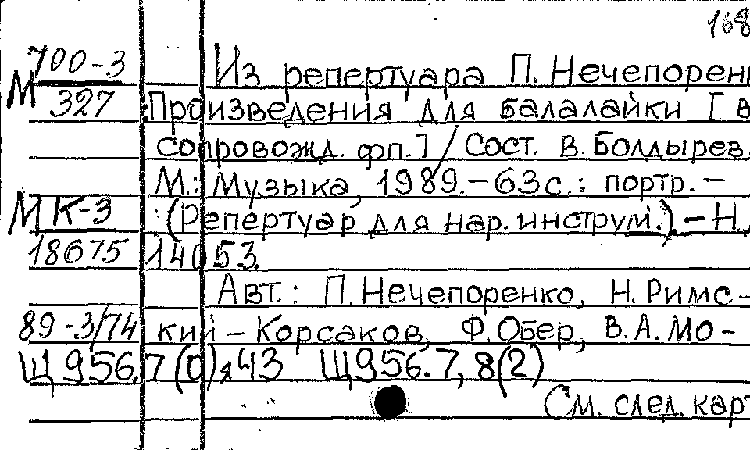 168
М 700-3 Из репертуара П. Нечепорен
327 Произведения для балалайки [в
сопровожд. фп.] / Сост. В. Болдырев.
М.: Музыка, 1989.-63с.: портр.-
МК-3 (Репертуар для нар. инструм.).-Н.
18675 14053.
Авт.: П. Нечепоренко, Н. Римс-
89-3/74 кий-Корсаков, Ф. Обер, В. А. Мо-
Щ956.7(0)я43 Щ956.7,8(2)
См. след. карт